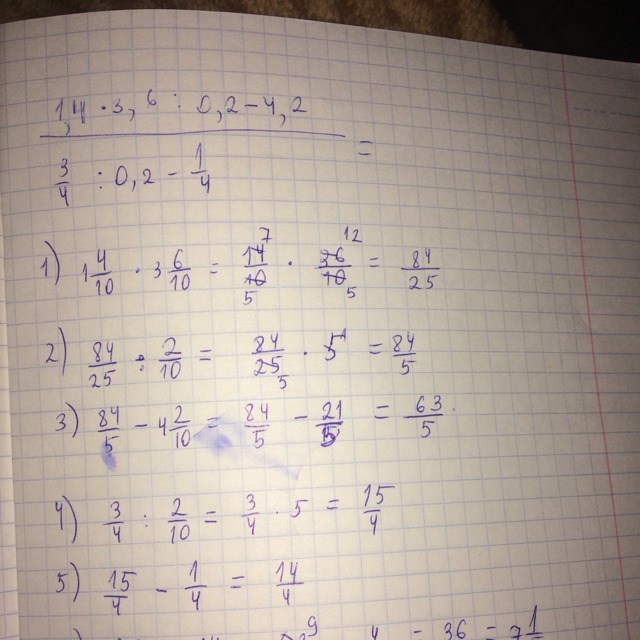 1,4 · 3,6 : 0,2 - 4,2
3/4 : 0,2 - 1/4 =
1) 1 4/10 · 3 6/10 = 14/10 · 36/10 = 84/25
7 12
5 5
2) 84/25 : 2/10 = 84/25 · 5 = 84/5
1
5
3) 84/5 - 4 2/10 = 84/5 - 21/5 = 63/5
4) 3/4 : 2/10 = 3/4 · 5 = 15/4
5) 15/4 - 1/4 = 14/4
9 4 36 1
= =